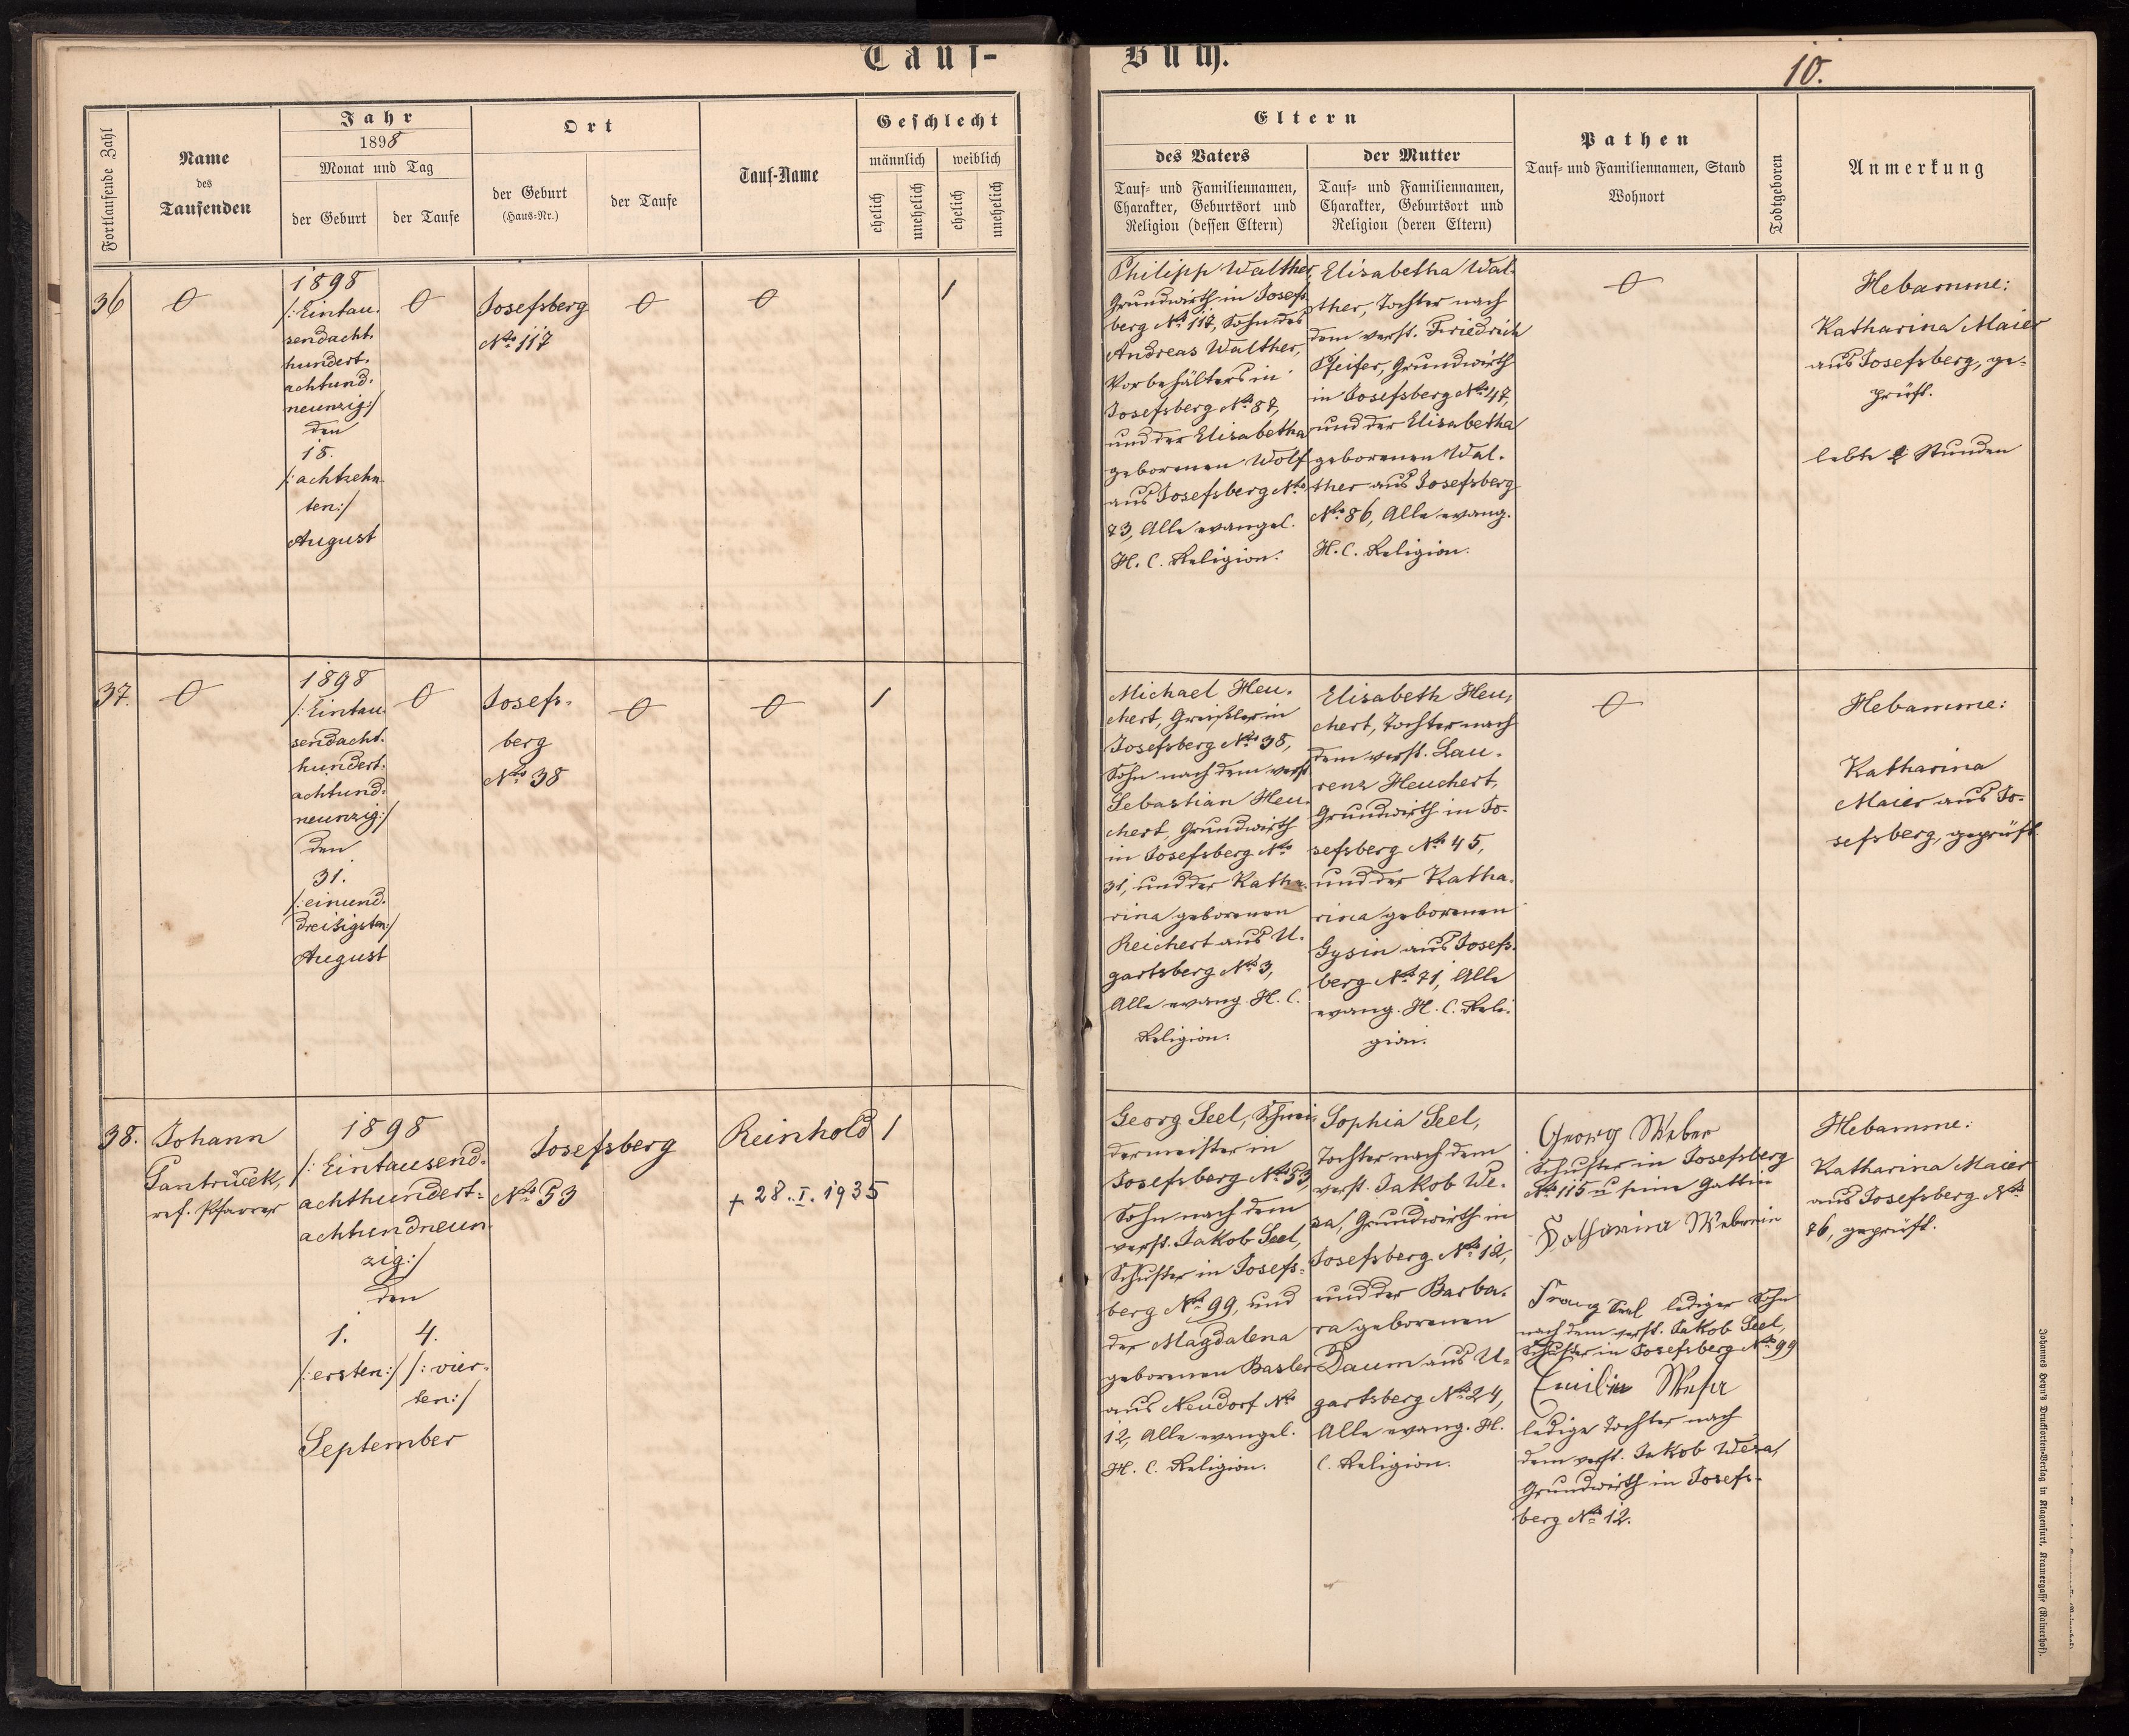 Tauf-
Buch.
10.
Fortlaufende Zahl
Name
des
Taufenden
Jahr
1898
Monat und Tag
der Geburt
der Taufe
Ort
der Geburt
(Haus-Nr.)
der Taufe
Tauf-Name
Geschlecht
männlich
weiblich
ehelich
unehelich
ehelich
unehelich
Eltern
des Vaters
Tauf- und Familiennamen,
Charakter, Geburtsort und
Religion (dessen Eltern)
der Mutter
Tauf- und Familiennamen,
Charakter, Geburtsort und
Religion (deren Eltern)
Pathen
Tauf- und Familiennamen, Stand
Wohnort
Todtgeboren
Anmerkung
36
0
1898
/:Eintau-
sendacht-
hundert-
achtund-
neunzig:/
den
18.
/:achtzehn-
ten:/
August
0
Josefsberg
Nro 117
0
0
1
Philipp Walther,
Grundwirth in Josefs-
berg Nro 117, Sohn des
Andreas Walther,
Vorbehälters in
Josefsberg Nro 87,
und der Elisabetha
geborenen Wolf
aus Josefsberg Nro
73, Alle evangel.
H. C. Religion.
Elisabetha Wal-
ther, Tochter nach
dem verst. Friedrich
Pfeifer, Grundwirth
in Josefsberg Nro 47,
und der Elisabetha
geborenen Wal-
ther aus Josefsberg
Nro 86, Alle evang.
H. C. Religion.
0
Hebamme:
Katharina Maier
aus Josefsberg, ge-
prüft.
lebte 2 Stunden
37.
0
1898
/:Eintau-
sendacht-
hundert-
achtund-
neunzig:/
den
31.
/:einund-
dreisigsten:/
August
0
Josefs-
berg
Nro 38
0
0
1
Michael Heu-
chert, Greißler in
Josefsberg Nro 38,
Sohn nach dem verst.
Sebastian Heu-
chert, Grundwirth
in Josefsberg Nro
31, und der Katha-
rina geborenen
Reichert aus U-
gartsberg Nro 3,
Alle evang. H. C.
Religion.
Elisabeth Heu-
chert, Tochter nach
dem verst. Lau-
renz Heuchert,
Grundwirth in Jo-
sefsberg Nro 45,
und der Katha-
rina geborenen
Gysin aus Josefs-
berg Nro 71, Alle
evang. H. C. Reli-
gion.
0
Hebamme:
Katharina
Maier aus Jo-
sefsberg, geprüft.
38.
Johann
Pantrucek,
ref. Pfarrer
1898
/:Eintausend-
achthundert-
achtundneun-
zig:/
den
1. 4.
/:ersten:/ /:vier-
ten:/
September
Josefsberg
Nro 53
Reinhold
+ 28. I. 1935
1
Georg Seel, Schnei-
dermeister in
Josefsberg Nro 53,
Sohn nach dem
verst. Jakob Seel,
Schuster in Josefs-
berg Nro 99, und
der Magdalena
geborenen Basler
aus Neudorf Nro
12, Alle evangel.
H. C. Religion.
Sophia Seel,
Tochter nach dem
verst. Jakob We-
sa, Grundwirth in
Josefsberg Nro 12,
und der Barba-
ra geborenen
Daum aus U-
gartsberg Nro 24,
Alle evang. H.
C. Religion.
Georg Weber
Schuster in Josefsberg
Nro 115 u seine Gattin
Katharina Weberin
Franz Seel lediger Sohn
nach dem verst. Jakob Seel,
Schuster in Josefsberg Nro 99
Emilia Wesa
ledige Tochter nach
dem verst. Jakob Wesa,
Grundwirth in Josefs-
berg Nro 12.
Hebamme:
Katharina Maier
aus Josefsberg Nro
76, geprüft.
Johannes Heyn's Drucksorten-Verlag in Klagenfurt, Kramergasse (Rainerhof).